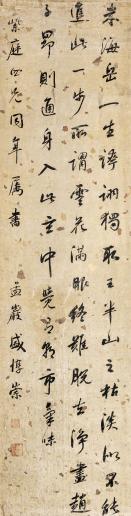 米海岳一生譚訓獨取王半山之枯淡似果能
進此一步所謂雲花滿眼終難脫去淨盡趙
子昂則通身入此定中覺有朝市氣味
紫庭四兄同年屬書 孟巖盛惇崇